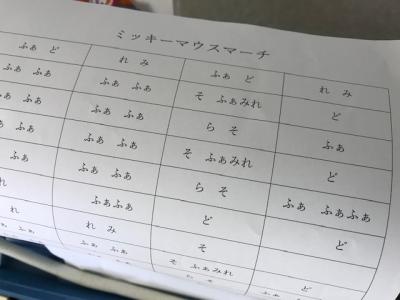 ミッキーマウスマーチ
ふぁ ど れ み ふぁ ど れ み
ふぁ ふぁ ふぁ ふぁ そ ふぁみれ ど
ふぁ ふぁ ふぁ ら そ ふぁ
ふぁ ふぁ ふぁ そ ふぁみれ ど
ふぁ ふぁ ふぁ ら そ ふぁ ふぁふぁ
ふぁ ふぁふぁ ど ど
れ れ み そ
ふぁ ふぁ ふぁ ふぁ そ ふぁみれ ど
ら そ